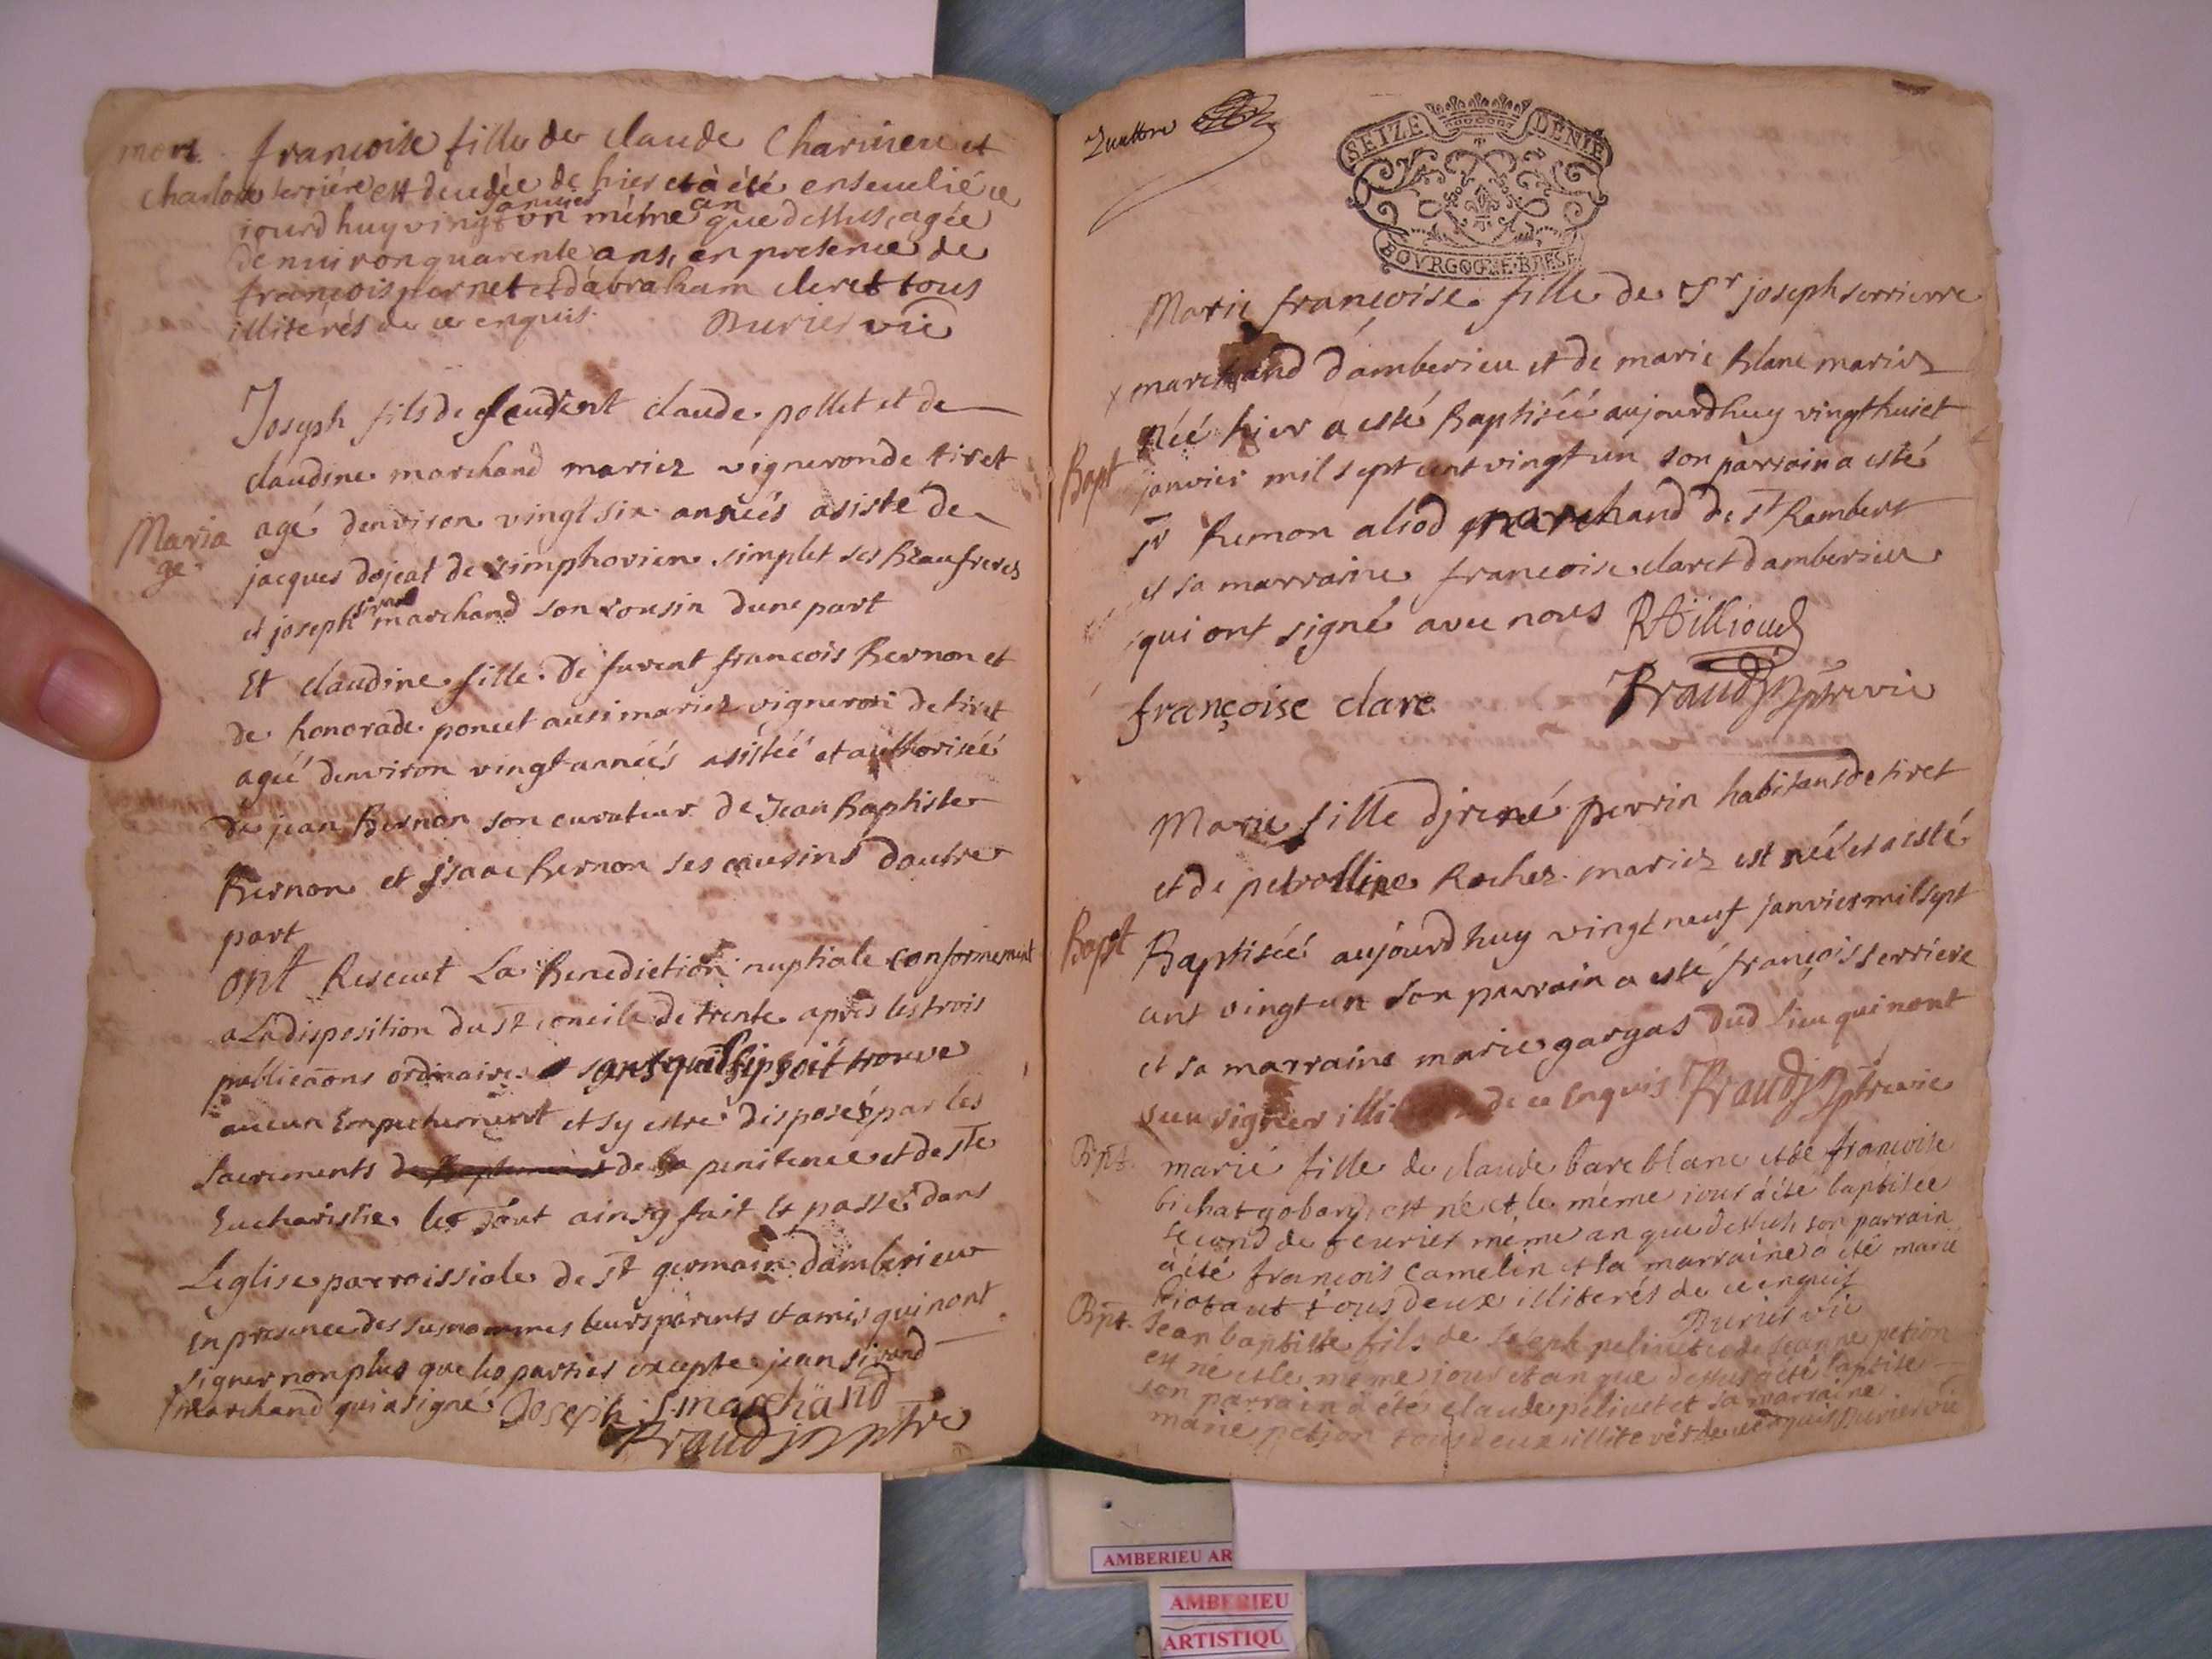 mort. francoise fille de claude Charvieu et
charlote serriére est decedée de hier et à été enseuelie ce
januier an
iourdhuy vingt un méme que dessus, agée
denuiron quarente ans, en presence de
francois pernet et dabraham cleret tous
illitérés de ce enquis. Burier vic
Joseph fils de feu claude pollet et de
claudine marchand mariez vigneron de tiret
Maria agé denviron vingt six années asisté de
ge jacques dojeat de simphorien simplet ses Beaufreres
sirand
et joseph marchand son cousin dune part
Et claudine fille de furent francois Bernon et
de honorade poncet ausi mariez vigneron de tiret
agéé denviron vingt annéés asistéé et authoriséé
de jean Bernon son curateur de Jean Baptiste
Bernon et jsaac Bernon ses cousins dautre
part
ont Receut La Benediction nuptiale conformement
a La disposition du St concile de trente apres les trois
publicaons ordinaires sans quil sip soit trouve
aucun Empechement et sy estre disposés par les
sacrements de de la penitence et de Ste
Eucharistie le tout ainsy fait et passé dans
Leglise parroissiale de St germain damberieu
En presence des susnommes leurs parents et amis qui nont
signer non plus que les parties excepte jean sirand
marchand qui a signé Joseph S. marchand
Braud ptre
Quattre
SEIZE DENIE
BOVRGOGNE·BRESE
Marie francoise fille de Sr joseph serrierre
marchand damberieu et de marie Blanc mariez
néé hier a esté Baptiséé aujourdhuy vingt huict
Bapt janvier mil sept cent vingt un son parrain a esté
Sr Remon aliod marchand de St Rambert
et sa marraine francoise claret damberieu
qui ont signé avec nous R Aillioud
françoise clare Braud ptre vic
Marie fille de rené perrin habitant de tiret
et de petrolline Rochez mariez est néé et a esté
Bapt Baptiséé aujourdhuy vingt neuf janvier mil sept
cent vingt un son parrain a esté françois serriere
et sa marraine marie gargas dud lieu qui nont
sceu signer de ce Enquis Braud ptre vic
Bpt. marie fille de claude bare blanc et de francoise
bichat gobard est né et le méme iour à été baptisée
second de feurier méme an que dessus son parrain
à été francois Camelin et sa marraine à été marie
tous deux illiterés de ce enquis
Burier vic
Bpt. Jean baptiste fils de Joseph peliuet et de Jeanne petion
est né et le méme iour et an que dessus à été baptisé
son parrain à été claude peliuet et sa marraine
marie petion tous deux illiterés de ce enquis Burier vic
AMBERIEU AR
AMBERIEU
ARTISTIQU